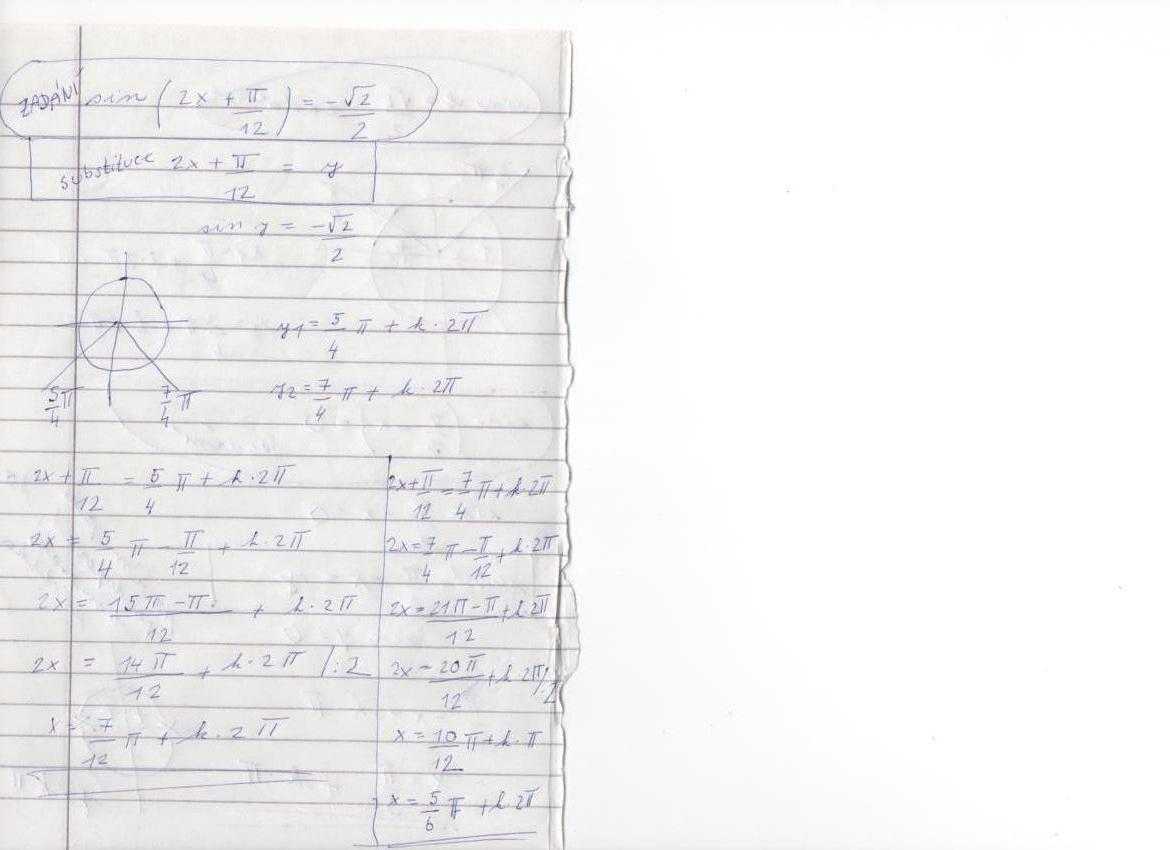 ZADÁNÍ sin (2x + π/12) = -√2/2
substituce 2x + π/12 = y
sin y = -√2/2
y1 = 5/4 π + k·2π
y2 = 7/4 π + k·2π
5/4 π 7/4 π
2x + π/12 = 5/4 π + k·2π
2x = 5/4 π - π/12 + k·2π
2x = (15π - π)/12 + k·2π
2x = 14π/12 + k·2π /:2
x = 7/12 π + k·2π
2x + π/12 = 7/4 π + k·2π
2x = 7/4 π - π/12 + k·2π
2x = (21π - π)/12 + k·2π
2x = 20π/12 + k·2π /:2
x = 10/12 π + k·π
x = 5/6 π + k·2π